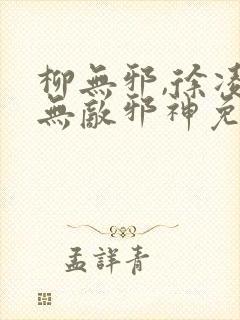 柳無邪,徐凌
無敵邪神免
孟詳青